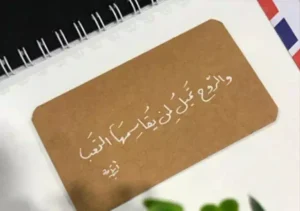 والرّوح تَميلُ لِمن يُقاسِمهَا التعَب